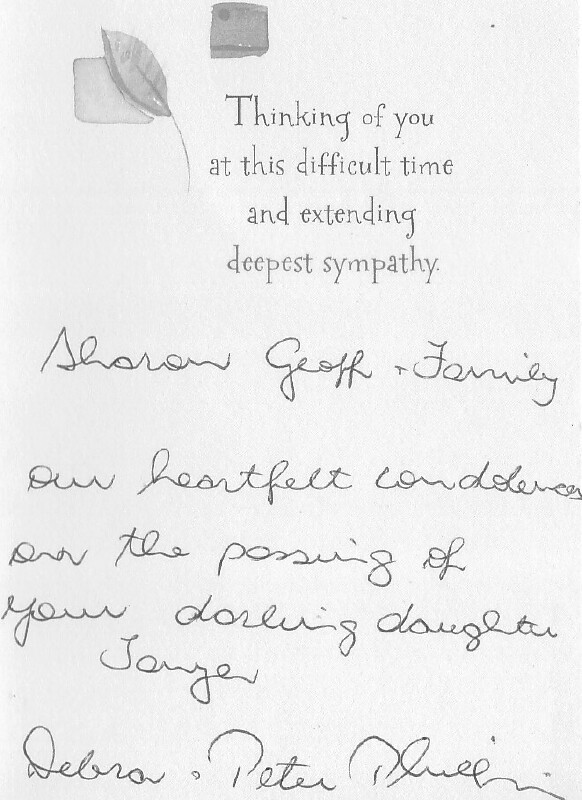 Thinking of you
at this difficult time
and extending
deepest sympathy.
Sharon Geoff + Family
our heartfelt condolences
on the passing of
your darling daughter
Debra + Peter